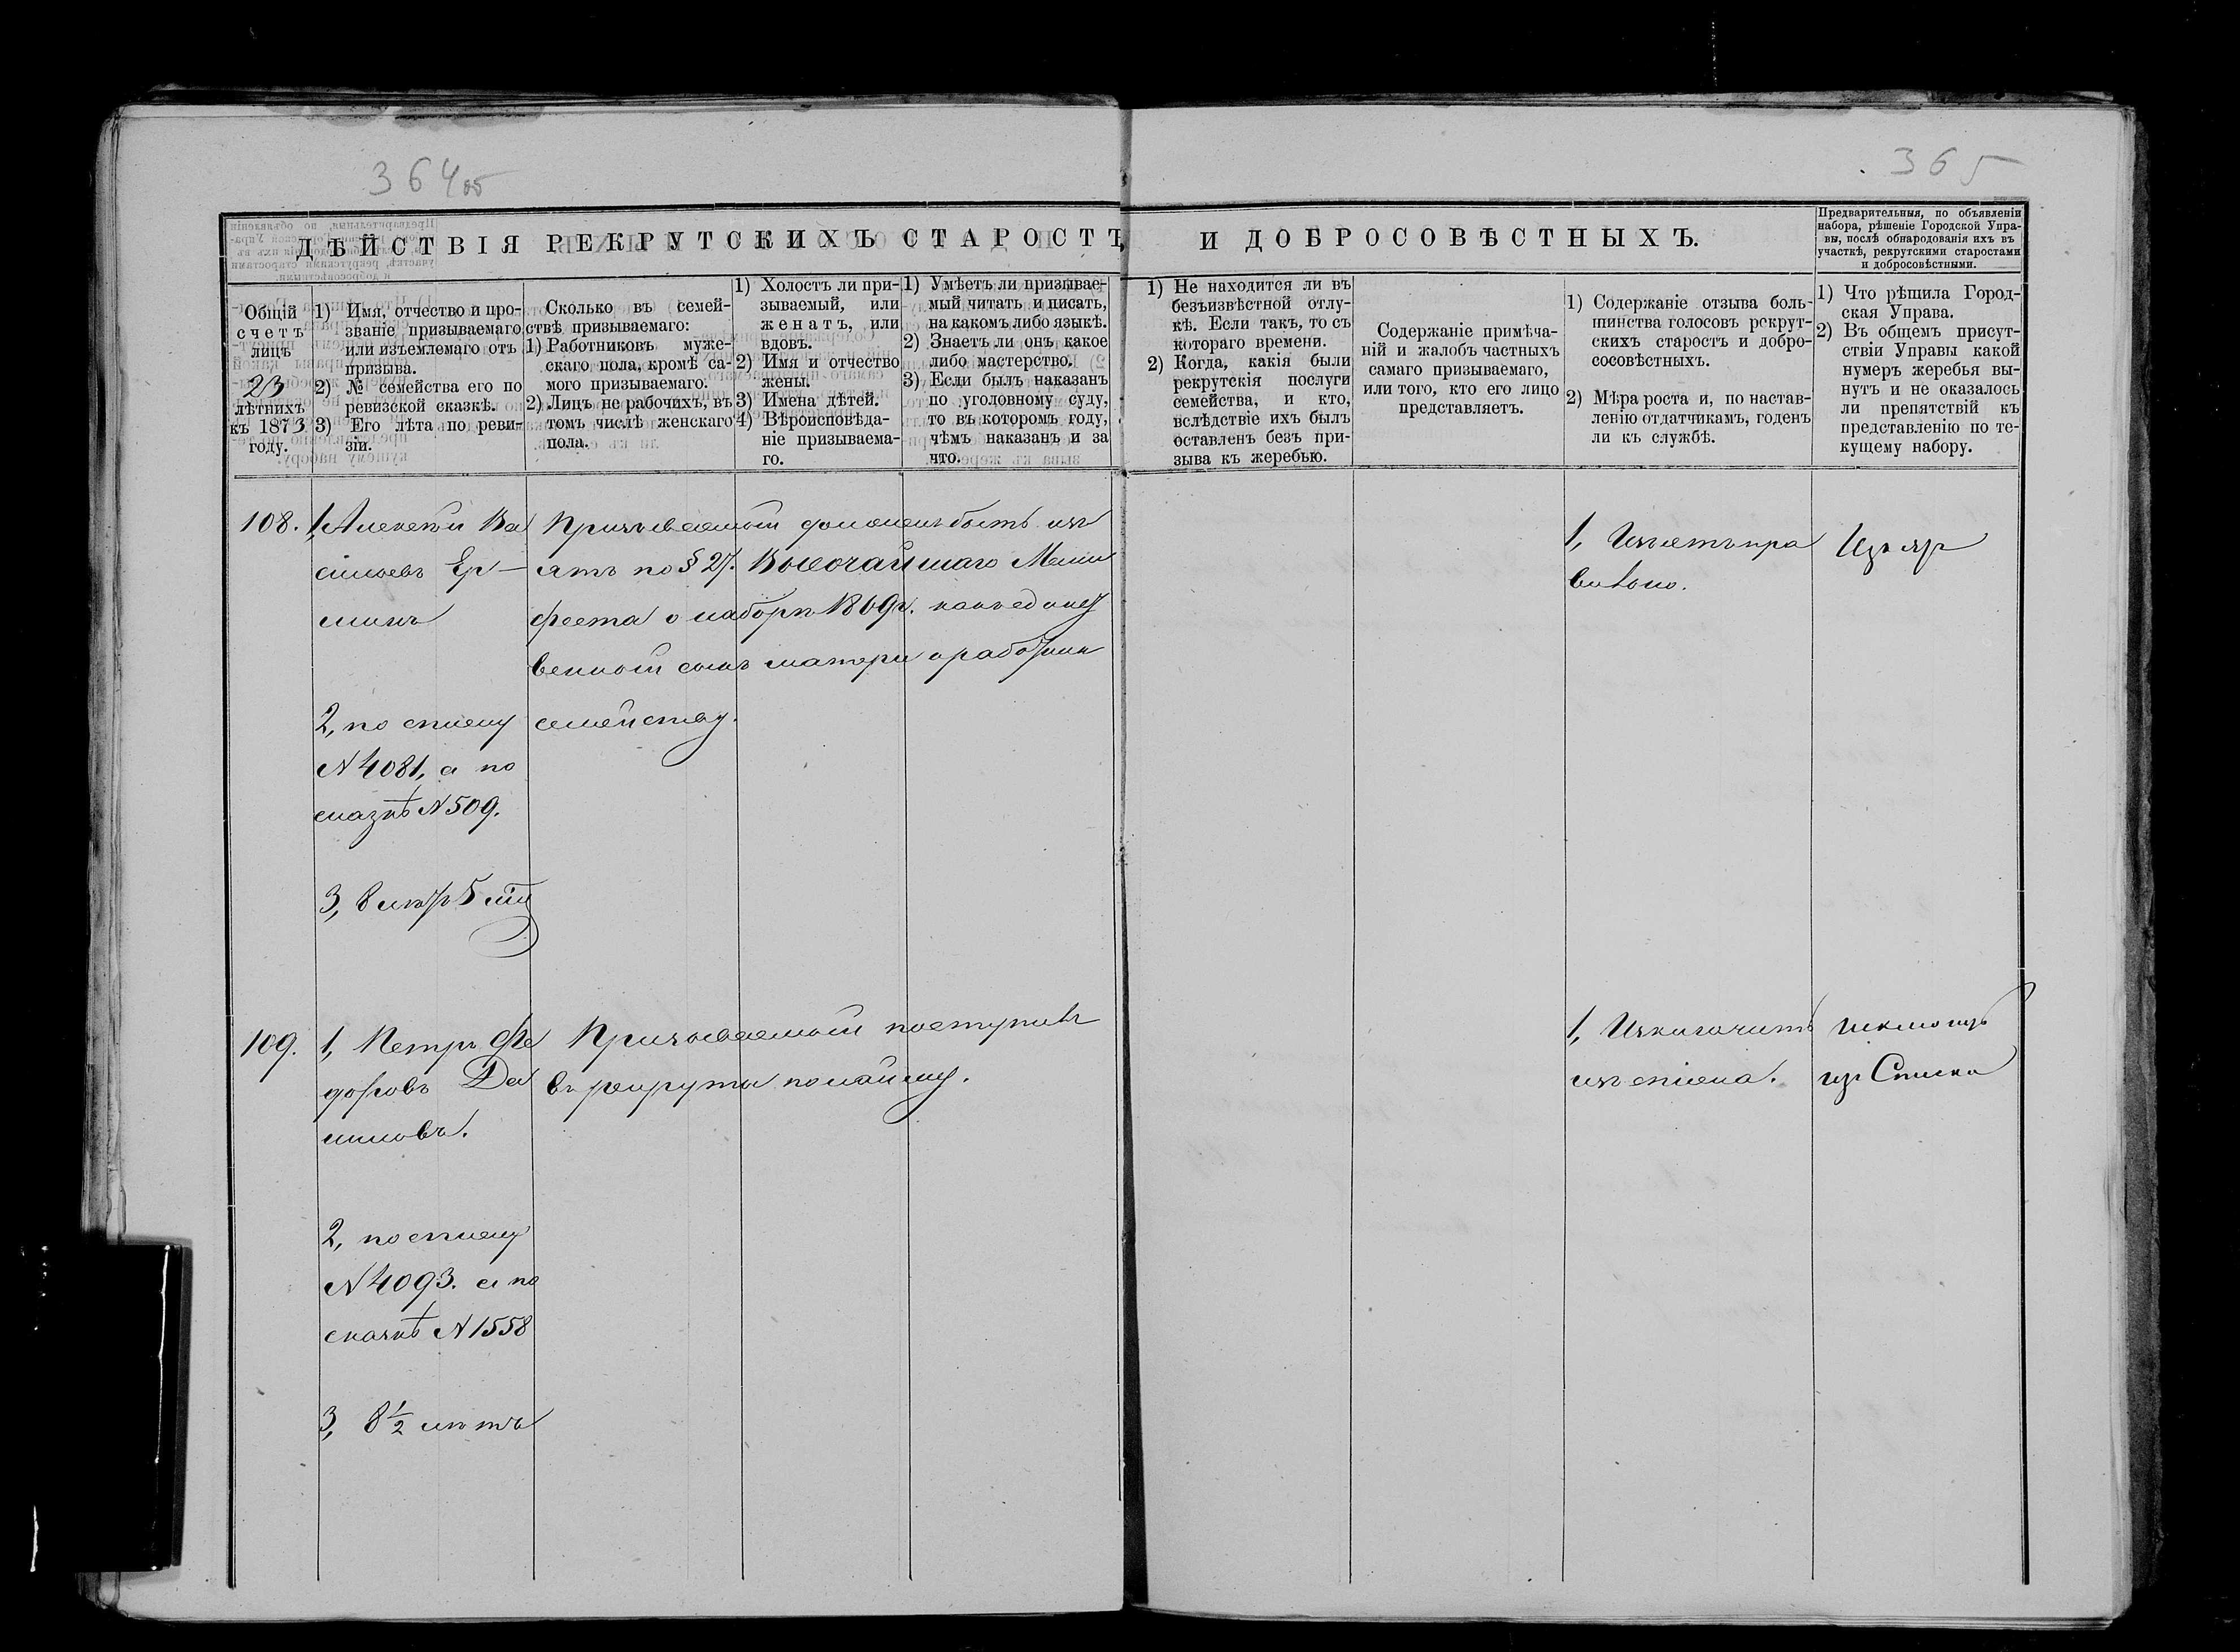 364об
365
ДѢЙСТВІЯ РЕКРУТСКИХЪ СТАРОСТЪ И ДОБРОСОВѢСТНЫХЪ.
Предварительныя, по объявленіи
набора, рѣшеніе Городской Упра-
вы, послѣ обнародованія ихъ въ
участкѣ, рекрутскими старостами
и добросовѣстными.
Общій
счетъ
лицъ
23
лѣтнихъ
къ 1873
году.
1) Имя, отчество и про-
званіе призываемаго
или изъемлемаго отъ
призыва.
2) № семейства его по
ревизской сказкѣ.
3) Его лѣта по реви-
зіи.
Сколько въ семей-
ствѣ призываемаго:
1) Работниковъ муже-
скаго пола, кромѣ са-
мого призываемаго.
2) Лицъ не рабочихъ, въ
томъ числѣ женскаго
пола.
1) Холостъ ли при-
зываемый, или
женатъ, или
вдовъ.
2) Имя и отчество
жены.
3) Имена дѣтей.
4) Вѣроисповѣда-
ніе призываема-
го.
1) Умѣетъ ли призывае-
мый читать и писать,
на какомъ либо языкѣ.
2) Знаетъ ли онъ какое
либо мастерство.
3) Если былъ наказанъ
по уголовному суду,
то въ которомъ году,
чѣмъ наказанъ и за
что.
1) Не находится ли въ
безъизвѣстной отлу-
кѣ. Если такъ, то съ
котораго времени.
2) Когда, какія были
рекрутскія послуги
семейства, и кто,
вслѣдствіе ихъ былъ
оставленъ безъ при-
зыва къ жеребью.
Содержаніе примѣча-
ній и жалобъ частныхъ
самаго призываемаго,
или того, кто его лицо
представляетъ.
1) Содержаніе отзыва боль-
шинства голосовъ рекрут-
скихъ старостъ и добро-
сосовѣстныхъ.
2) Мѣра роста и, по настав-
ленію отдатчикамъ, годенъ
ли къ службѣ.
1) Что рѣшила Город-
ская Управа.
2) Въ общемъ присут-
ствіи Управы какой
нумеръ жеребья вы-
нутъ и не оказалось
ли препятствій къ
представленію по те-
кущему набору.
108.
1, Алексѣй Ва
сильевъ Ер-
минъ
2, по списку
№ 4081, а по
сказкѣ № 509.
3, 8 лѣтъ 5 мц
Призываемый долженъ быть изъ
ятъ по § 27. Высочайшаго Мани
феста о наборѣ 1869 г. какъ единст
венный сынъ матери и работник
семейству.
1, Изъятъ пра
вильно.
Изъят
109.
1, Петръ Фе
доровъ Да
ниловъ.
2, по списку
№ 4093. а по
сказкѣ № 1558
3, 8½ лѣтъ
Призываемый поступилъ
въ рекруты по найму.
1, Исключить
изъ списка.
исключить
изъ Списка